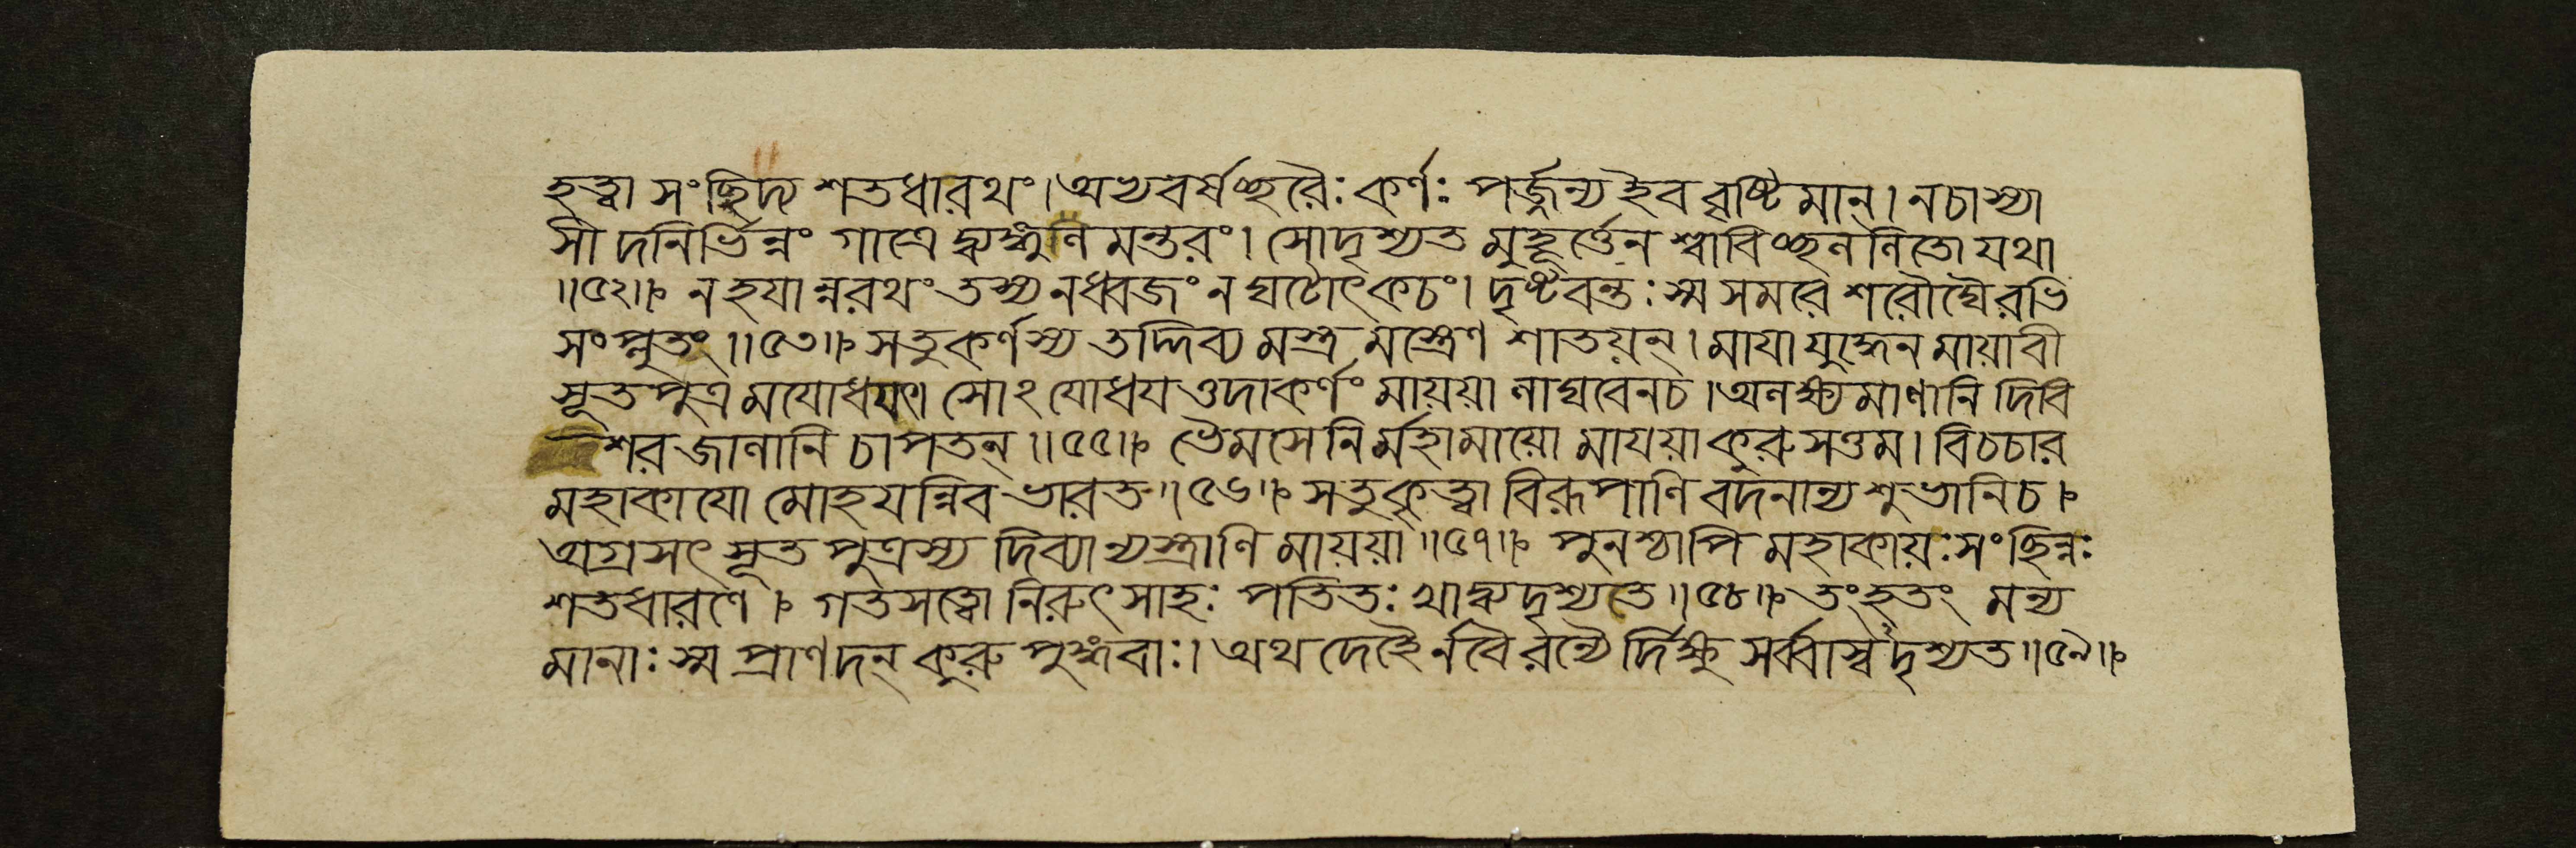 হত্বা সংছিদ্য শতধারথং। অখবর্ষঞ্ছরৈঃ কর্ণঃ পর্জ্জন্য ইব বৃষ্টিমান্। ন চাস্যা
সীদনির্ভিন্নং গাত্রে দ্ব্যঙ্গুনিমন্তরং। সোদৃশ্যত মুহূর্ত্তেন শ্বাবিচ্ছননিতো যথা
॥৫২॥ ন হযান্নরথং তস্য ন ধ্বজং ন ঘটোৎকচং। দৃষ্টবন্তঃ স্ম সমরে শরৌঘৈরভি
সংপ্লুতং॥৫৩॥ স তু কর্ণস্য তদ্দিব্যমস্ত্রমস্ত্রেণ শাতয়ন্। মাযাযুদ্ধেন মায়াবী
সূতপুত্রমযোধযৎ। সোঽযোধযত্তদা কর্ণং মায়য়া নাঘবেন চ। অনক্ষ্যমাণানি দিবি
শরজানানি চাপতন্॥৫৫॥ ভৈমসেনির্মহামায়ো মাযয়া কুরুসত্তম। বিচচার
মহাকাযো মোহযন্নিব ভারত॥৫৬॥ স তু কৃত্বা বিরূপাণি বদনান্যশুভানি চ।
অগ্রসৎ সূতপুত্রস্য দিব্যান্যস্ত্রাণি মায়য়া॥৫৭॥ পুনশ্চাপি মহাকায়ঃ সংছিন্নঃ
শতধা রণে। গতসত্বো নিরুৎসাহঃ পতিতঃ খাদ্ব্যদৃশ্যতে॥৫৮॥ তং হতং মন্য
মানাঃ স্ম প্রাণদন্ কুরুপুঙ্গবাঃ। অথ দেহৈর্নবৈরন্যৈর্দিক্ষু সর্ব্বাস্বদৃশ্যত॥৫৯॥